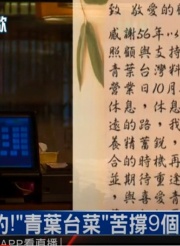 款
致 敬愛的
感謝56年以
照顧與支持
青葉台灣料
營業日10月
休息，休息
遠的路，
養精蓄銳，
合的時機再
並期待重逢
的與喜愛青
的!"青葉台菜"苦撐9個
APP看直播!